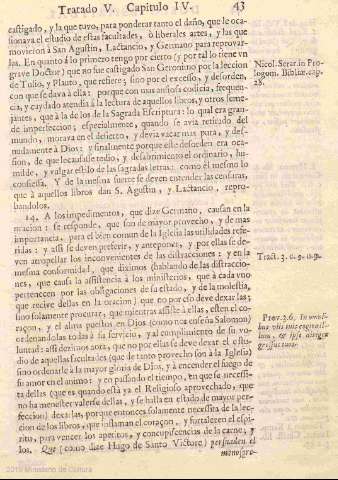 Tratado V. Capitulo IV. 43
castigarlo, y la que tuvo, para ponderar tanto el daño, que le oca-
sionava el estudio de estas facultades, ò liberales artes, y las que
movieron à San Agustin, Lactancio, y Germano para reprovar-
los. En quanto à lo primero tengo por cierto (y por tal lo tiene vn
grave Doctor) que no fue castigado San Geronimo por la leccion
de Tulio, y Plauto, que refiere; sino por el excesso, y desorden,
con que se dava à ella: porque con mas ansiosa codicia, frequen-
cia, y cuydado atendia à la lectura de aquellos libros, y otros seme-
jantes, que à la de los de la Sagrada Escriptura: lo qual era gran-
de imperfeccion; especialmente, quando se avia retirado del
mundo, morava en el desierto, y devia vacar mas pura, y des-
nudamente à Dios: y finalmente porque este desorden era oca-
sion, de que le causasse tedio, y desabrimiento el ordinario, hu-
milde, y vulgar estilo de las sagradas letras: como èl mesmo lo
confiessa. Y de la mesma suerte se deven entender las censuras,
que à aquellos libros dan S. Agustin, y Lactancio, repro-
bandolos.
14. A los impedimentos, que dize Germano, causan en la
oracion: se responde, que son de mayor provecho, y de mas
importancia, para el bien comun de la Iglesia las utilidades refe-
ridas: y assi se deven preferir, y anteponer, y por ellas se de-
ven atropellar los inconvenientes de las distracciones: y en la
mesma conformidad, que diximos (hablando de las distraccio-
nes, que causa la assistencia à los ministerios, que à cada vno
pertenecen por las obligaciones de su estado, y de la molestia,
que recive dellas en la oracion) que no por esso deve dexarlas;
sino solamente procurar, que mientras assiste à ellas, estèn el co-
raçon, y el alma puestos en Dios (como nos enseña Salomon)
ordenandolas todas à su servicio, y al cumplimiento de su vo-
luntad: assi dezimos aora, que no por ellas se deve dexar el estu-
dio de aquellas facultades (que de tanto provecho son à la Iglesia)
sino ordenarle à la mayor gloria de Dios, y à encender el fuego de
su amor en el animo: y en passando el tiempo, en que se necessi-
ta dellas (que es quando està ya el Religioso aprovechado, que
no ha menester valerse dellas, y se halla en estado de mayor per-
feccion) dexarlas, porque entonces solamente necessita de la lec-
cion de los libros, que inflaman el coraçon, y fortalecen el espi-
ritu, para vencer los apetitos, y concupiscencias de la carne, y
los. Que (como dize Hugo de Santo Victore) persuaden el
menospre-
Nicol. Serar. in Pro-
logom. Bibliæ. cap.
Tract. 3. c. 9. n. 9.
Prov. 3. 6. In omni-
bus viis tuis cogita il-
lum, & ipse diriget
gressus tuos.
2019 Ministerio de Cultura